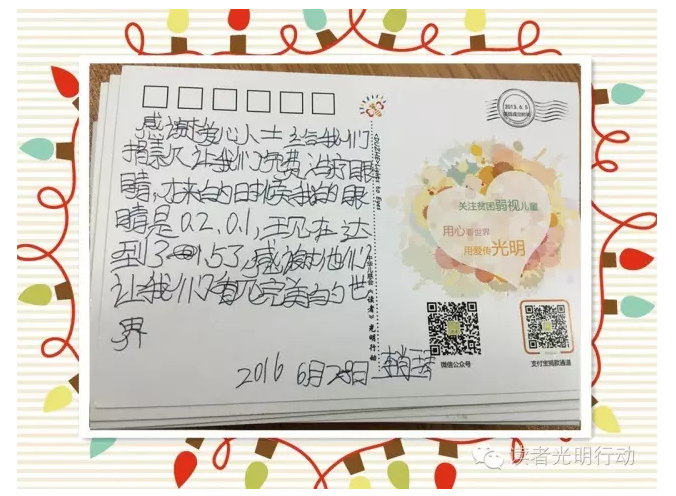 感谢爱心人士给我们
捐款让我们免费治疗眼
睛,本来的时候我的眼
睛是0.2,0.1,现在达
到了1.5了,感谢他们
让我们看见完美的世
界
2016 6月28日
《读者》光明行动
2013.6.5
关注贫困弱视儿童
用心看世界
用爱传光明
微信公众号
支付宝捐款通道
读者光明行动